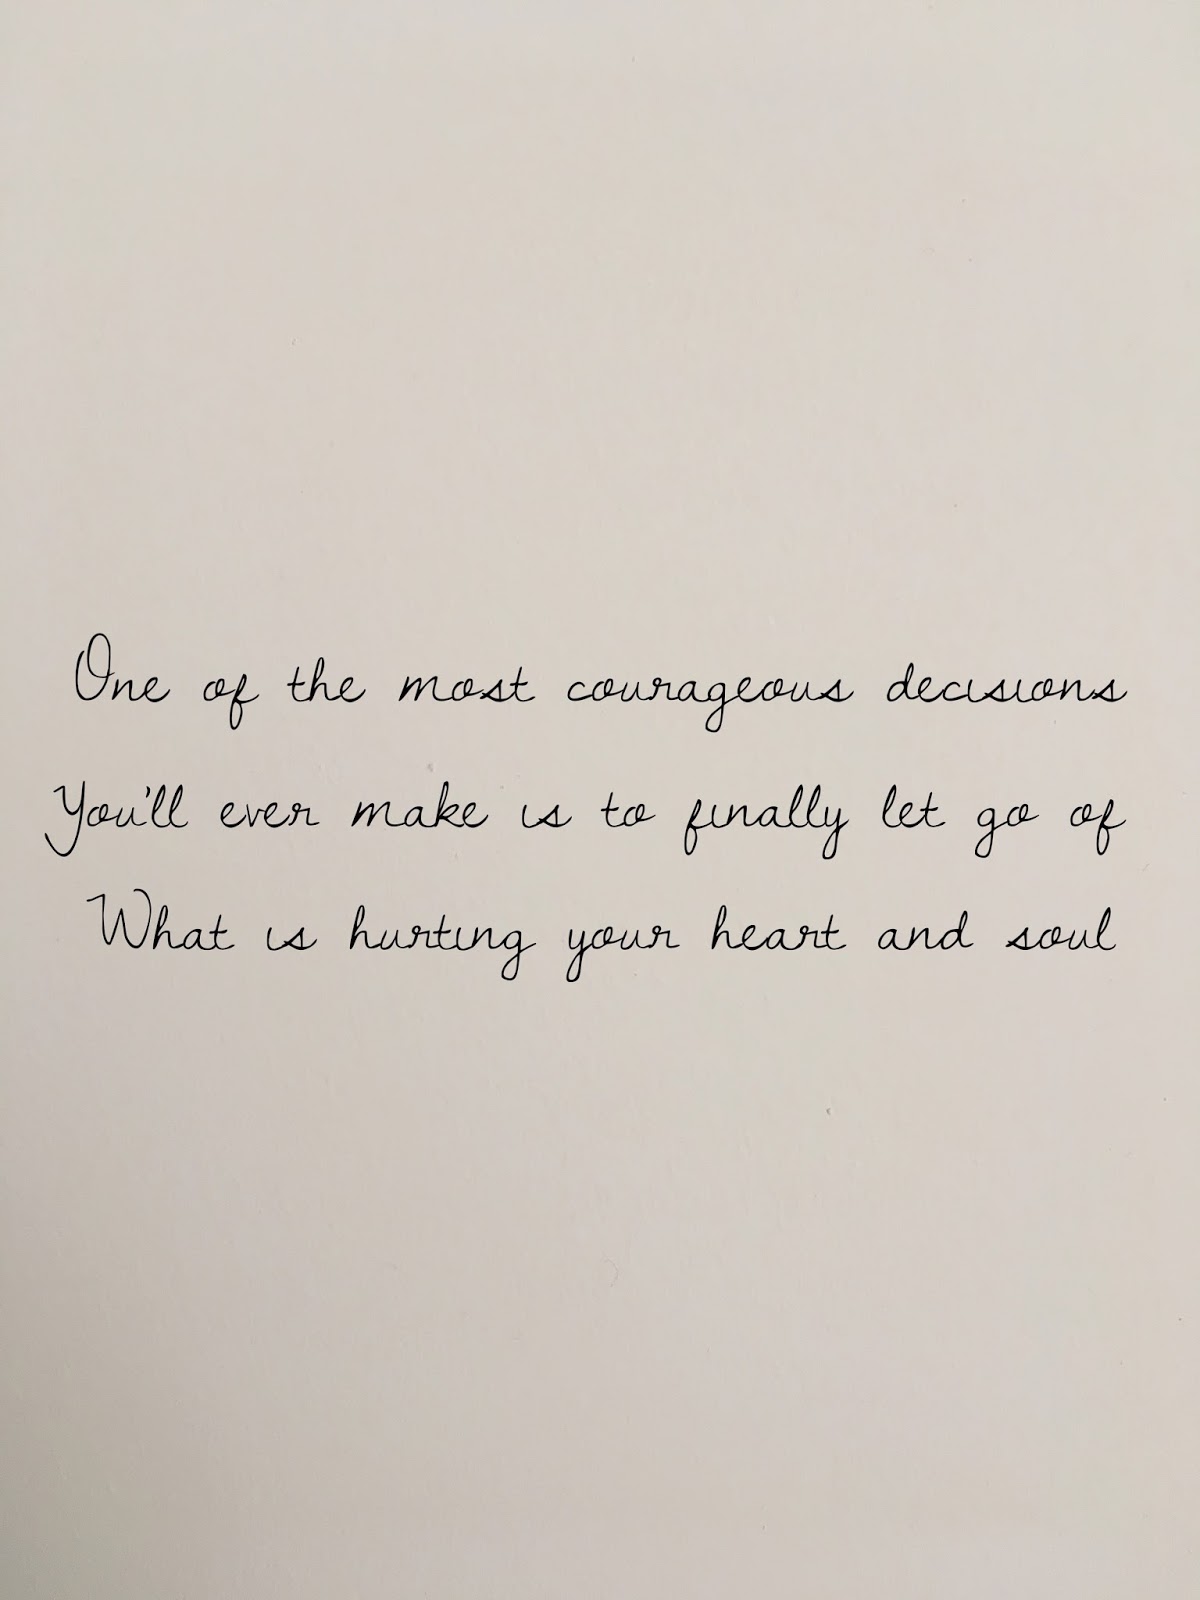 One of the most courageous decisions
You'll ever make is to finally let go of
What is hurting your heart and soul